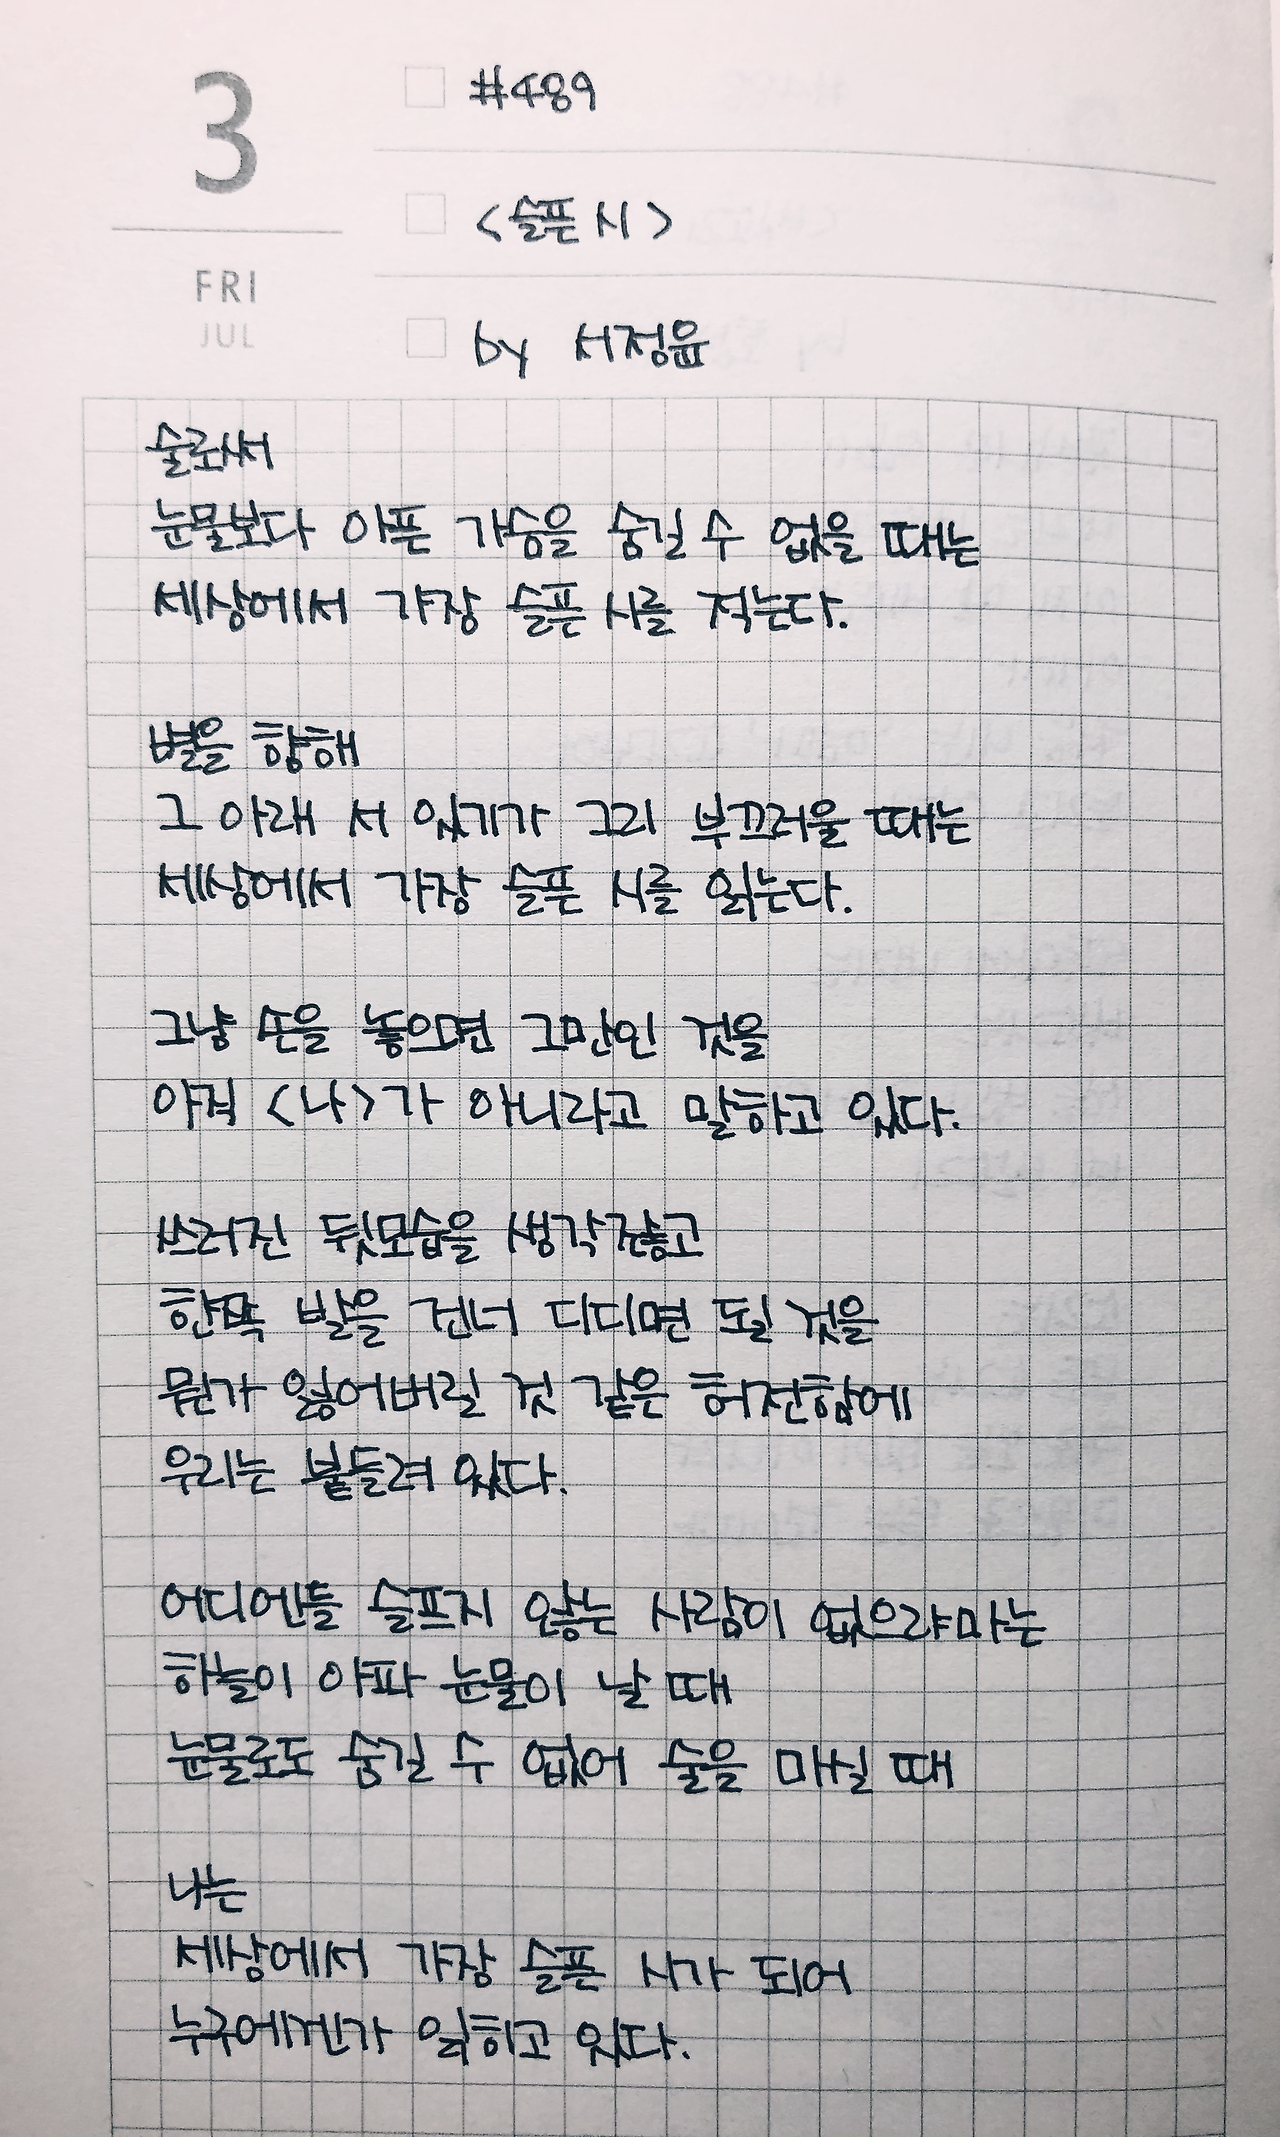 3
FRI
JUL
#489
<슬픈 시>
by 서정윤
술로써
눈물보다 아픈 가슴을 숨길 수 없을 때는
세상에서 가장 슬픈 시를 적는다.
별을 향해
그 아래 서 있기가 그리 부끄러울 때는
세상에서 가장 슬픈 시를 읽는다.
그냥 손을 놓으면 그만인 것을
아직 <나>가 아니라고 말하고 있다.
쓰러진 뒷모습을 생각잖고
한쪽 발을 건너 디디면 될 것을
뭔가 잃어버릴 것 같은 허전함에
우리는 붙들려 있다.
어디엔들 슬프지 않는 사람이 없으랴마는
하늘이 아파 눈물이 날 때
눈물로도 숨길 수 없어 술을 마실 때
나는
세상에서 가장 슬픈 시가 되어
누구에겐가 읽히고 있다.